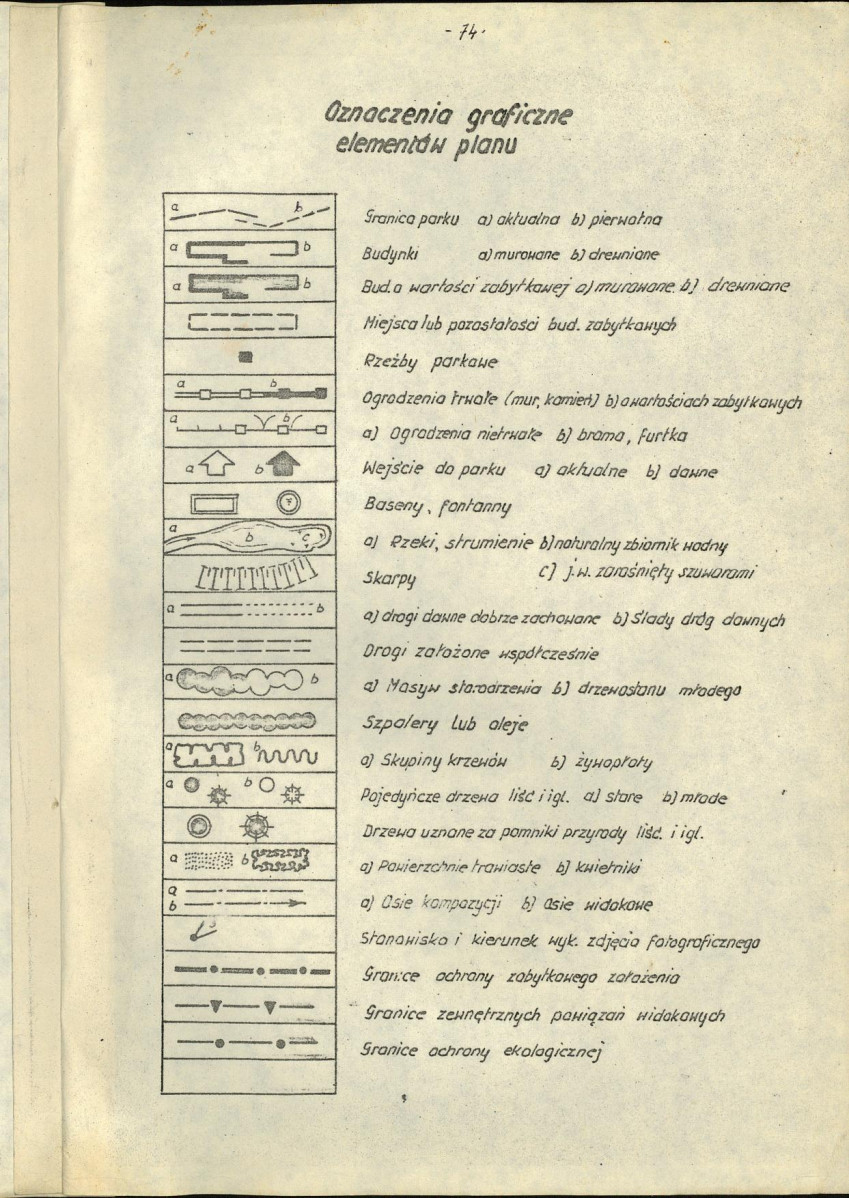 - 74 -
Oznaczenia graficzne
elementów planu
a b Granica parku a) aktualna b) pierwotna
a b Budynki a) murowane b) drewniane
a b Bud. o wartości zabytkowej a) murowane b) drewniane
Miejsca lub pozostałości bud. zabytkowych
Rzeźby parkowe
a b Ogrodzenia trwałe (mur, kamień) b) o wartościach zabytkowych
a b a) Ogrodzenia nietrwałe b) brama, furtka
a b Wejście do parku a) aktualne b) dawne
Baseny, fontanny
a b c a) Rzeki, strumienie b) naturalny zbiornik wodny
Skarpy c) j.w. zarośnięty szuwarami
a b a) drogi dawne dobrze zachowane b) Ślady dróg dawnych
Drogi założone współcześnie
a b a) Masyw starodrzewia b) drzewostanu młodego
Szpalery lub aleje
a b a) Skupiny krzewów b) żywopłoty
a b Pojedyńcze drzewa liść i igl. a) stare b) młode
Drzewa uznane za pomniki przyrody liść. i igl.
a b a) Powierzchnie trawiaste b) kwietniki
a
b a) Osie kompozycji b) Osie widokowe
3 Stanowisko i kierunek wyk. zdjęcia fotograficznego
Granice ochrony zabytkowego założenia
Granice zewnętrznych powiązań widokowych
Granice ochrony ekologicznej